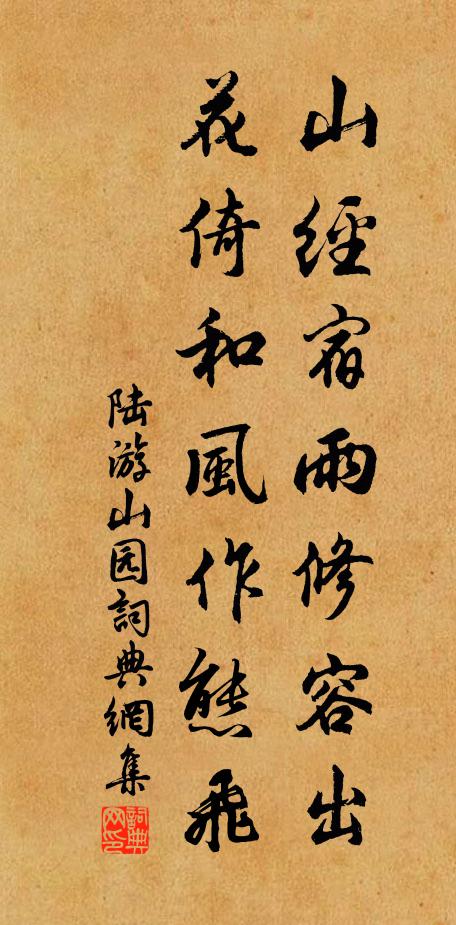 山經宿雨修容出
花倚和風作態飛
陆游山园詞典網集
詞典网印